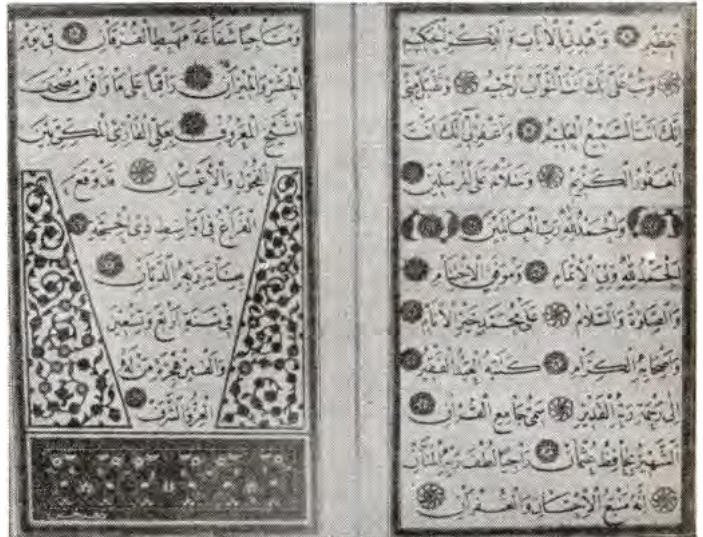 والذكر الحكيم
وتب على انك انت التواب الرحيم وتقبل منى
انك انت السميع العليم واغفر لى انك انت
الغفور الكريم وسلام على المرسلين
والحمد لله رب العالمين
الحمد لله ولى وموفى
والصلوة والسلام على محمد خير الانام
واصحابه الكرام كتبه العبد الفقير
الى رحمة ربه القدير سمى جامع القرآن
الشهير بحافظ عثمان راجيا لطف ربه المنان
انه منبع الاحسان والغفران
شفاعة مهبط الفرقان فى يوم
الحشر والميزان راقما على ما وافق مصحف
الشيخ المعروف بعلى القارئ المكى بين
الفحول والاعيان قد وقع
الفراغ فى اواسط ذى الحجة
ربهم الديان
فى سنة اربع وتسعين
والف من هجرة من له
العز والشرف